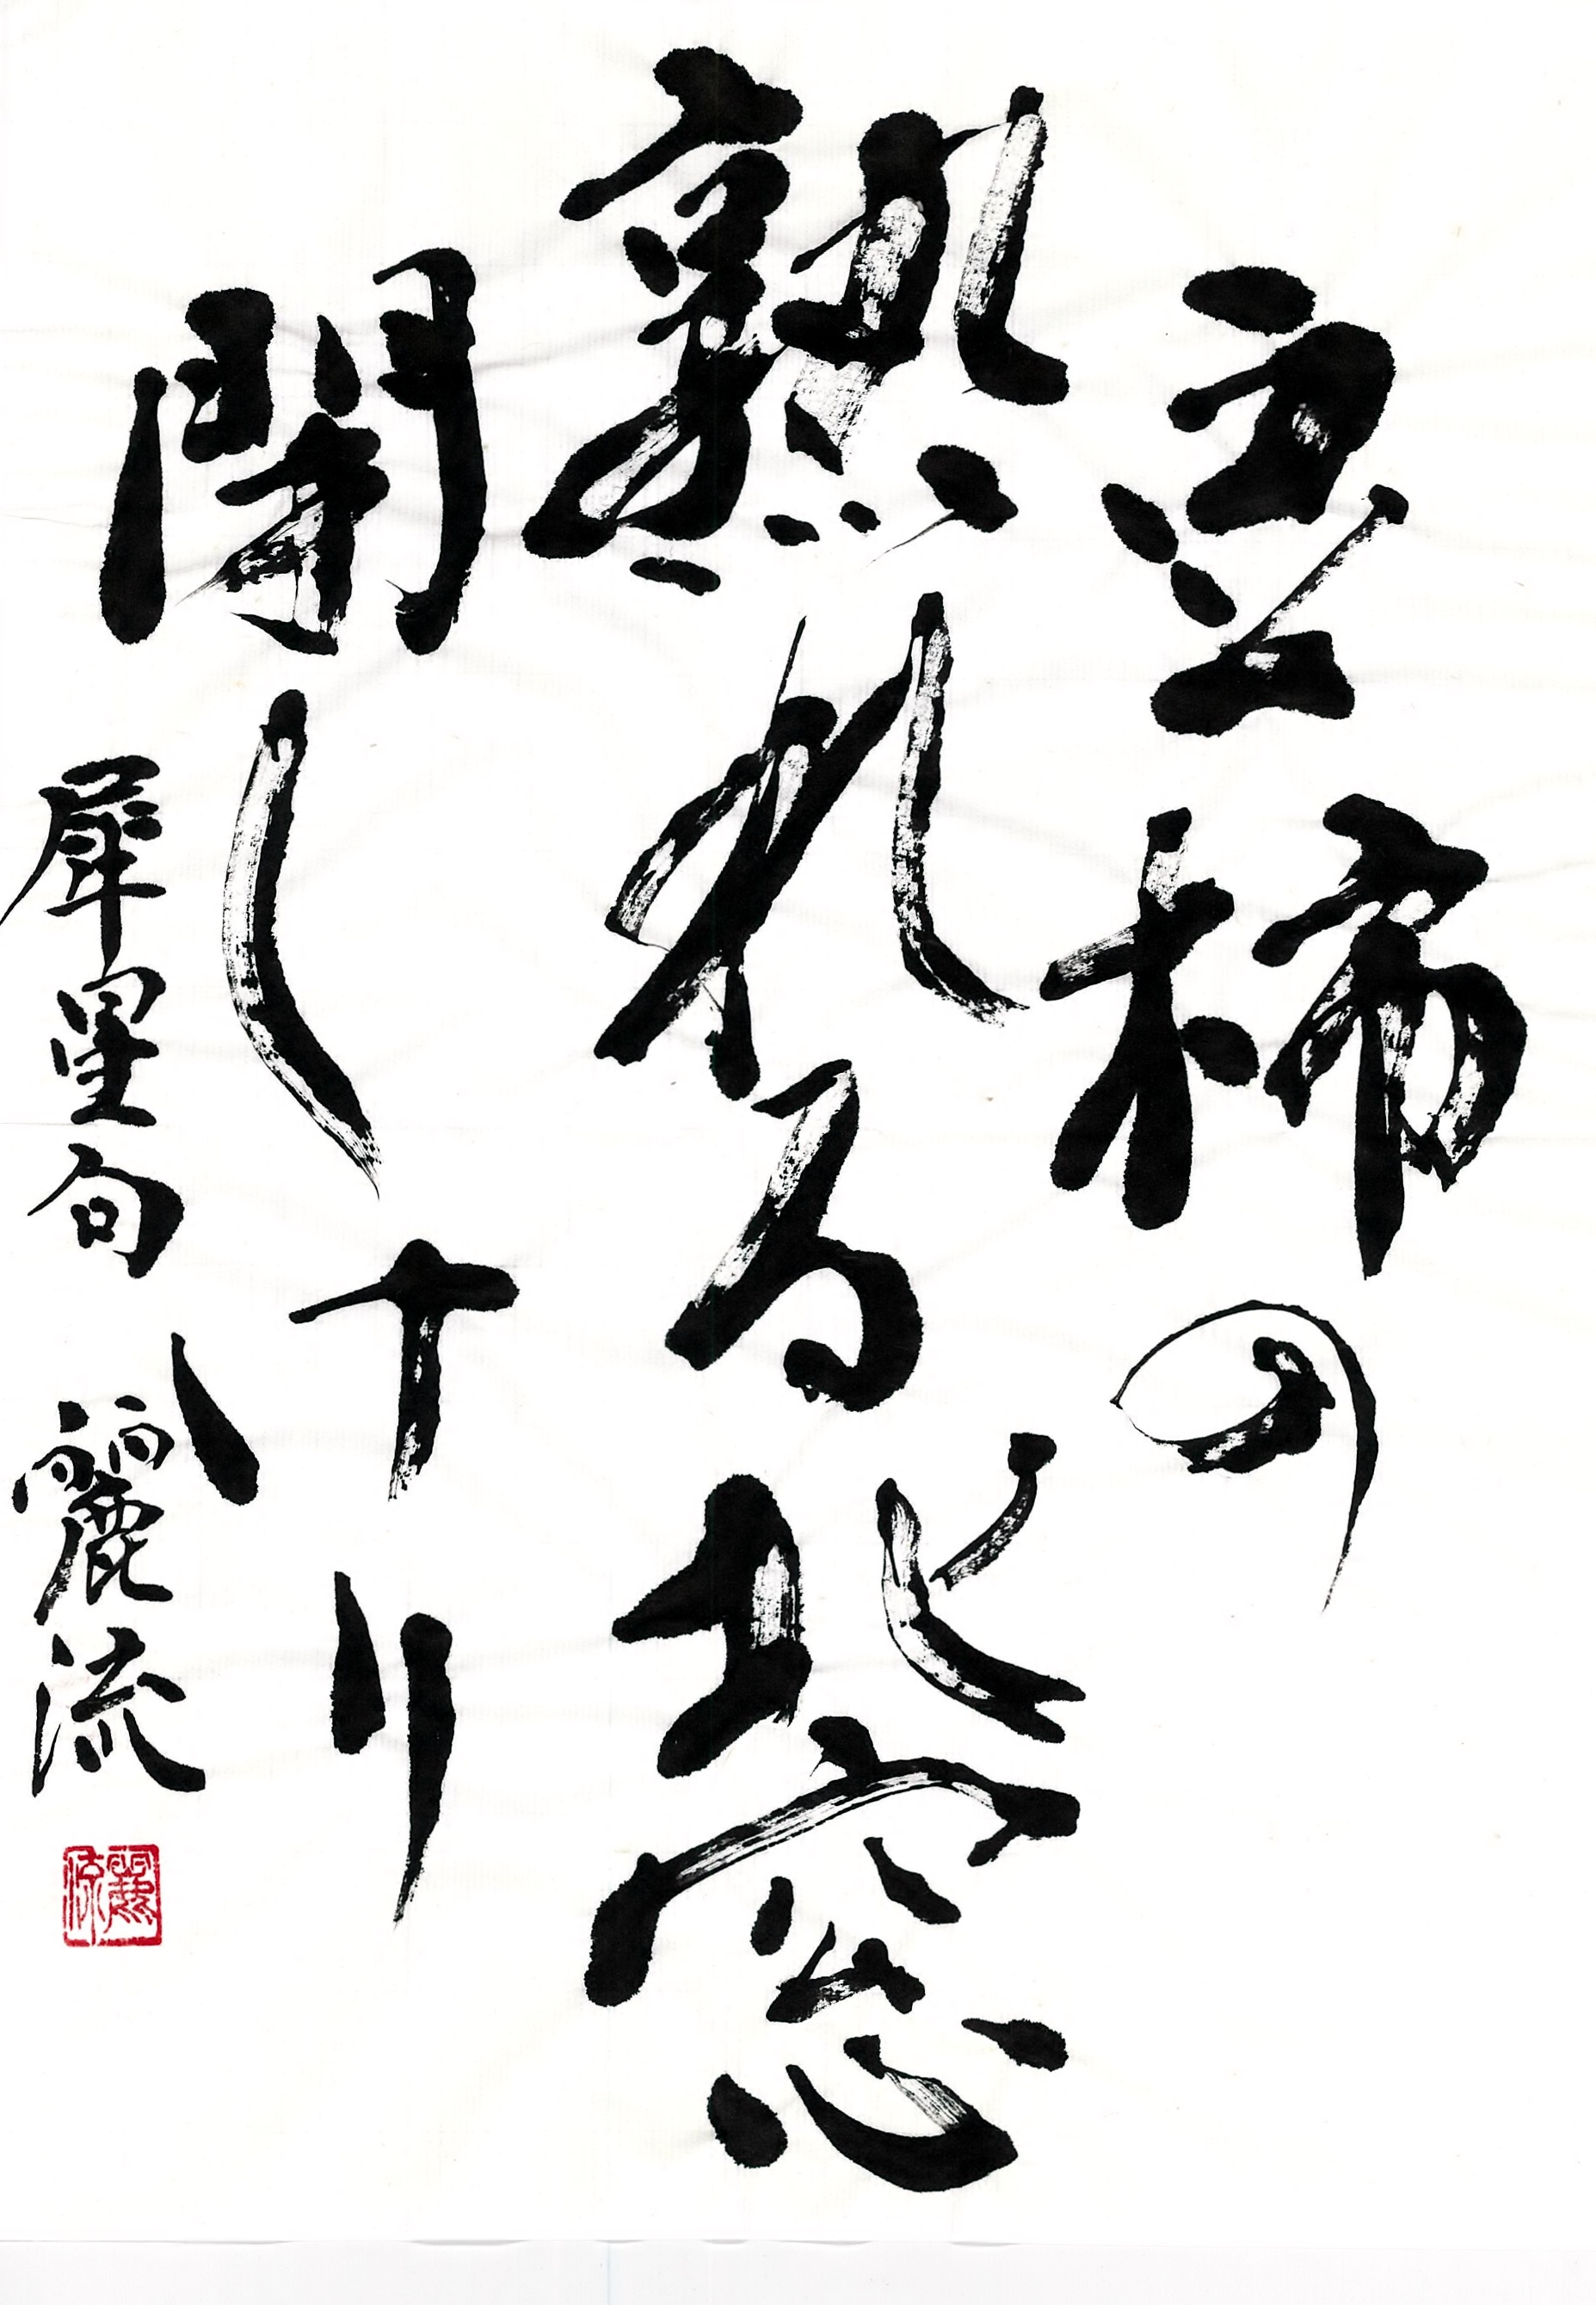 豆柿の
熟れる北窓
閉しけり
犀星句 麗流
麗流